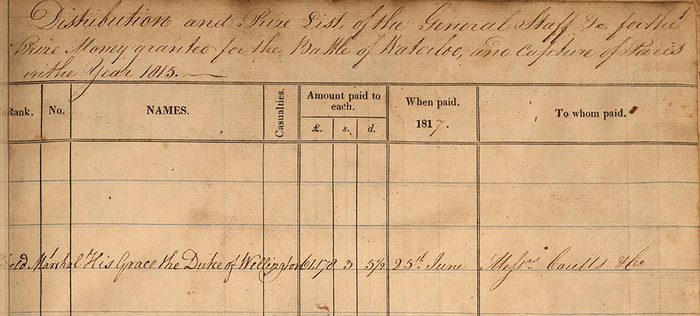 Distribution and Prize List, of the General Staff &c, for the
Prize Money granted for the Battle of Waterloo, and Capture of Paris
in the Year 1815.
Rank. No. NAMES. Casualties. Amount paid to each. When paid. 1817. To whom paid.
£. s. d.
eld Marshal His Grace the Duke of Wellington 61178 3 5½ 25th June Messrs Coutts & Co